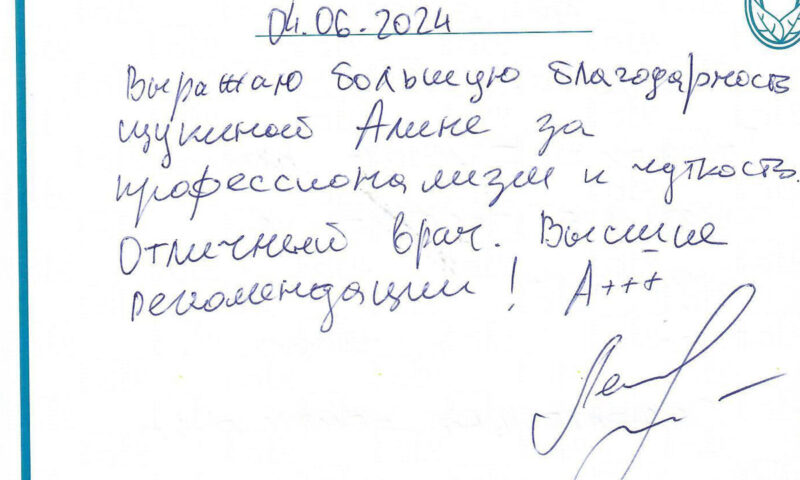 04.06.2024
Выражаю большую благодарность
щукиной Алине за
профессионализм и чуткость.
Отличный врач. Высшие
рекомендации! А+++